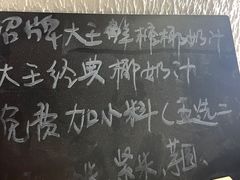 招牌大王鲜榨椰奶汁
大王经典椰奶汁
免费加小料(五选二
紫米、芋圆、